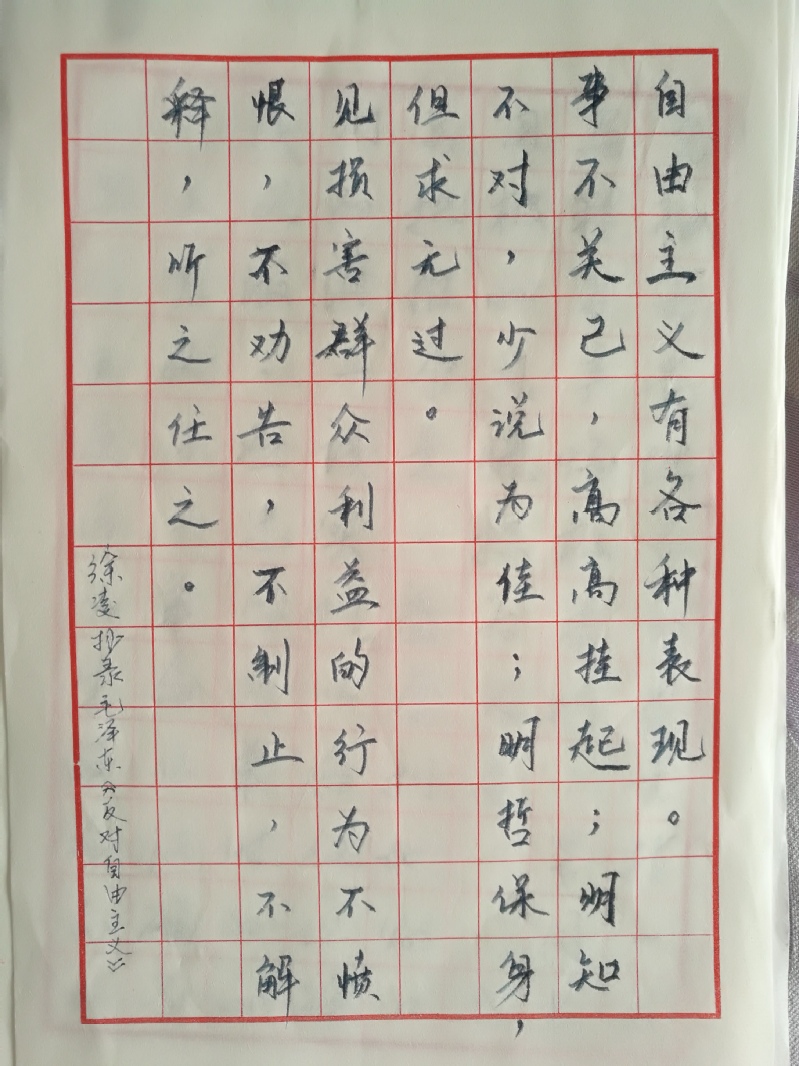 自由主义有各种表现。
事不关己，高高挂起；明知
不对，少说为佳；明哲保身，
但求无过。
见损害群众利益的行为不愤
恨，不劝告，不制止，不解
释，听之任之。
徐凌抄录毛泽东《反对自由主义》